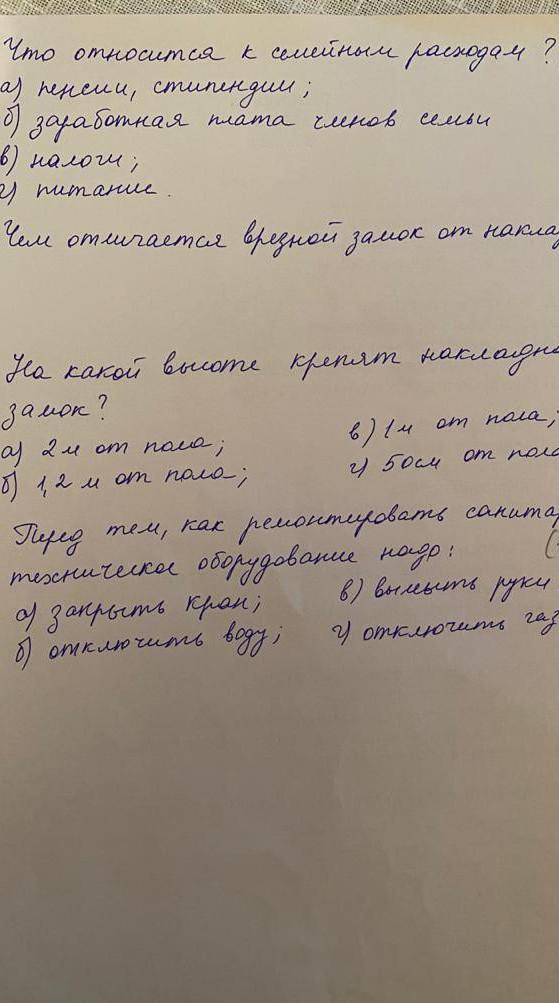 Что относится к семейным расходам?
а) пенсии, стипендии;
б) заработная плата членов семьи
в) налоги;
г) питание.
Чем отличается врезной замок от наклад
На какой высоте крепят накладно
замок?
а) 2 м от пола; в) 1 м от пола;
б) 1,2 м от пола; г) 50 см от пола
Перед тем, как ремонтировать санитар
техническое оборудование надо: (
а) закрыть кран; в) вымыть руки
б) отключить воду; г) отключить газ